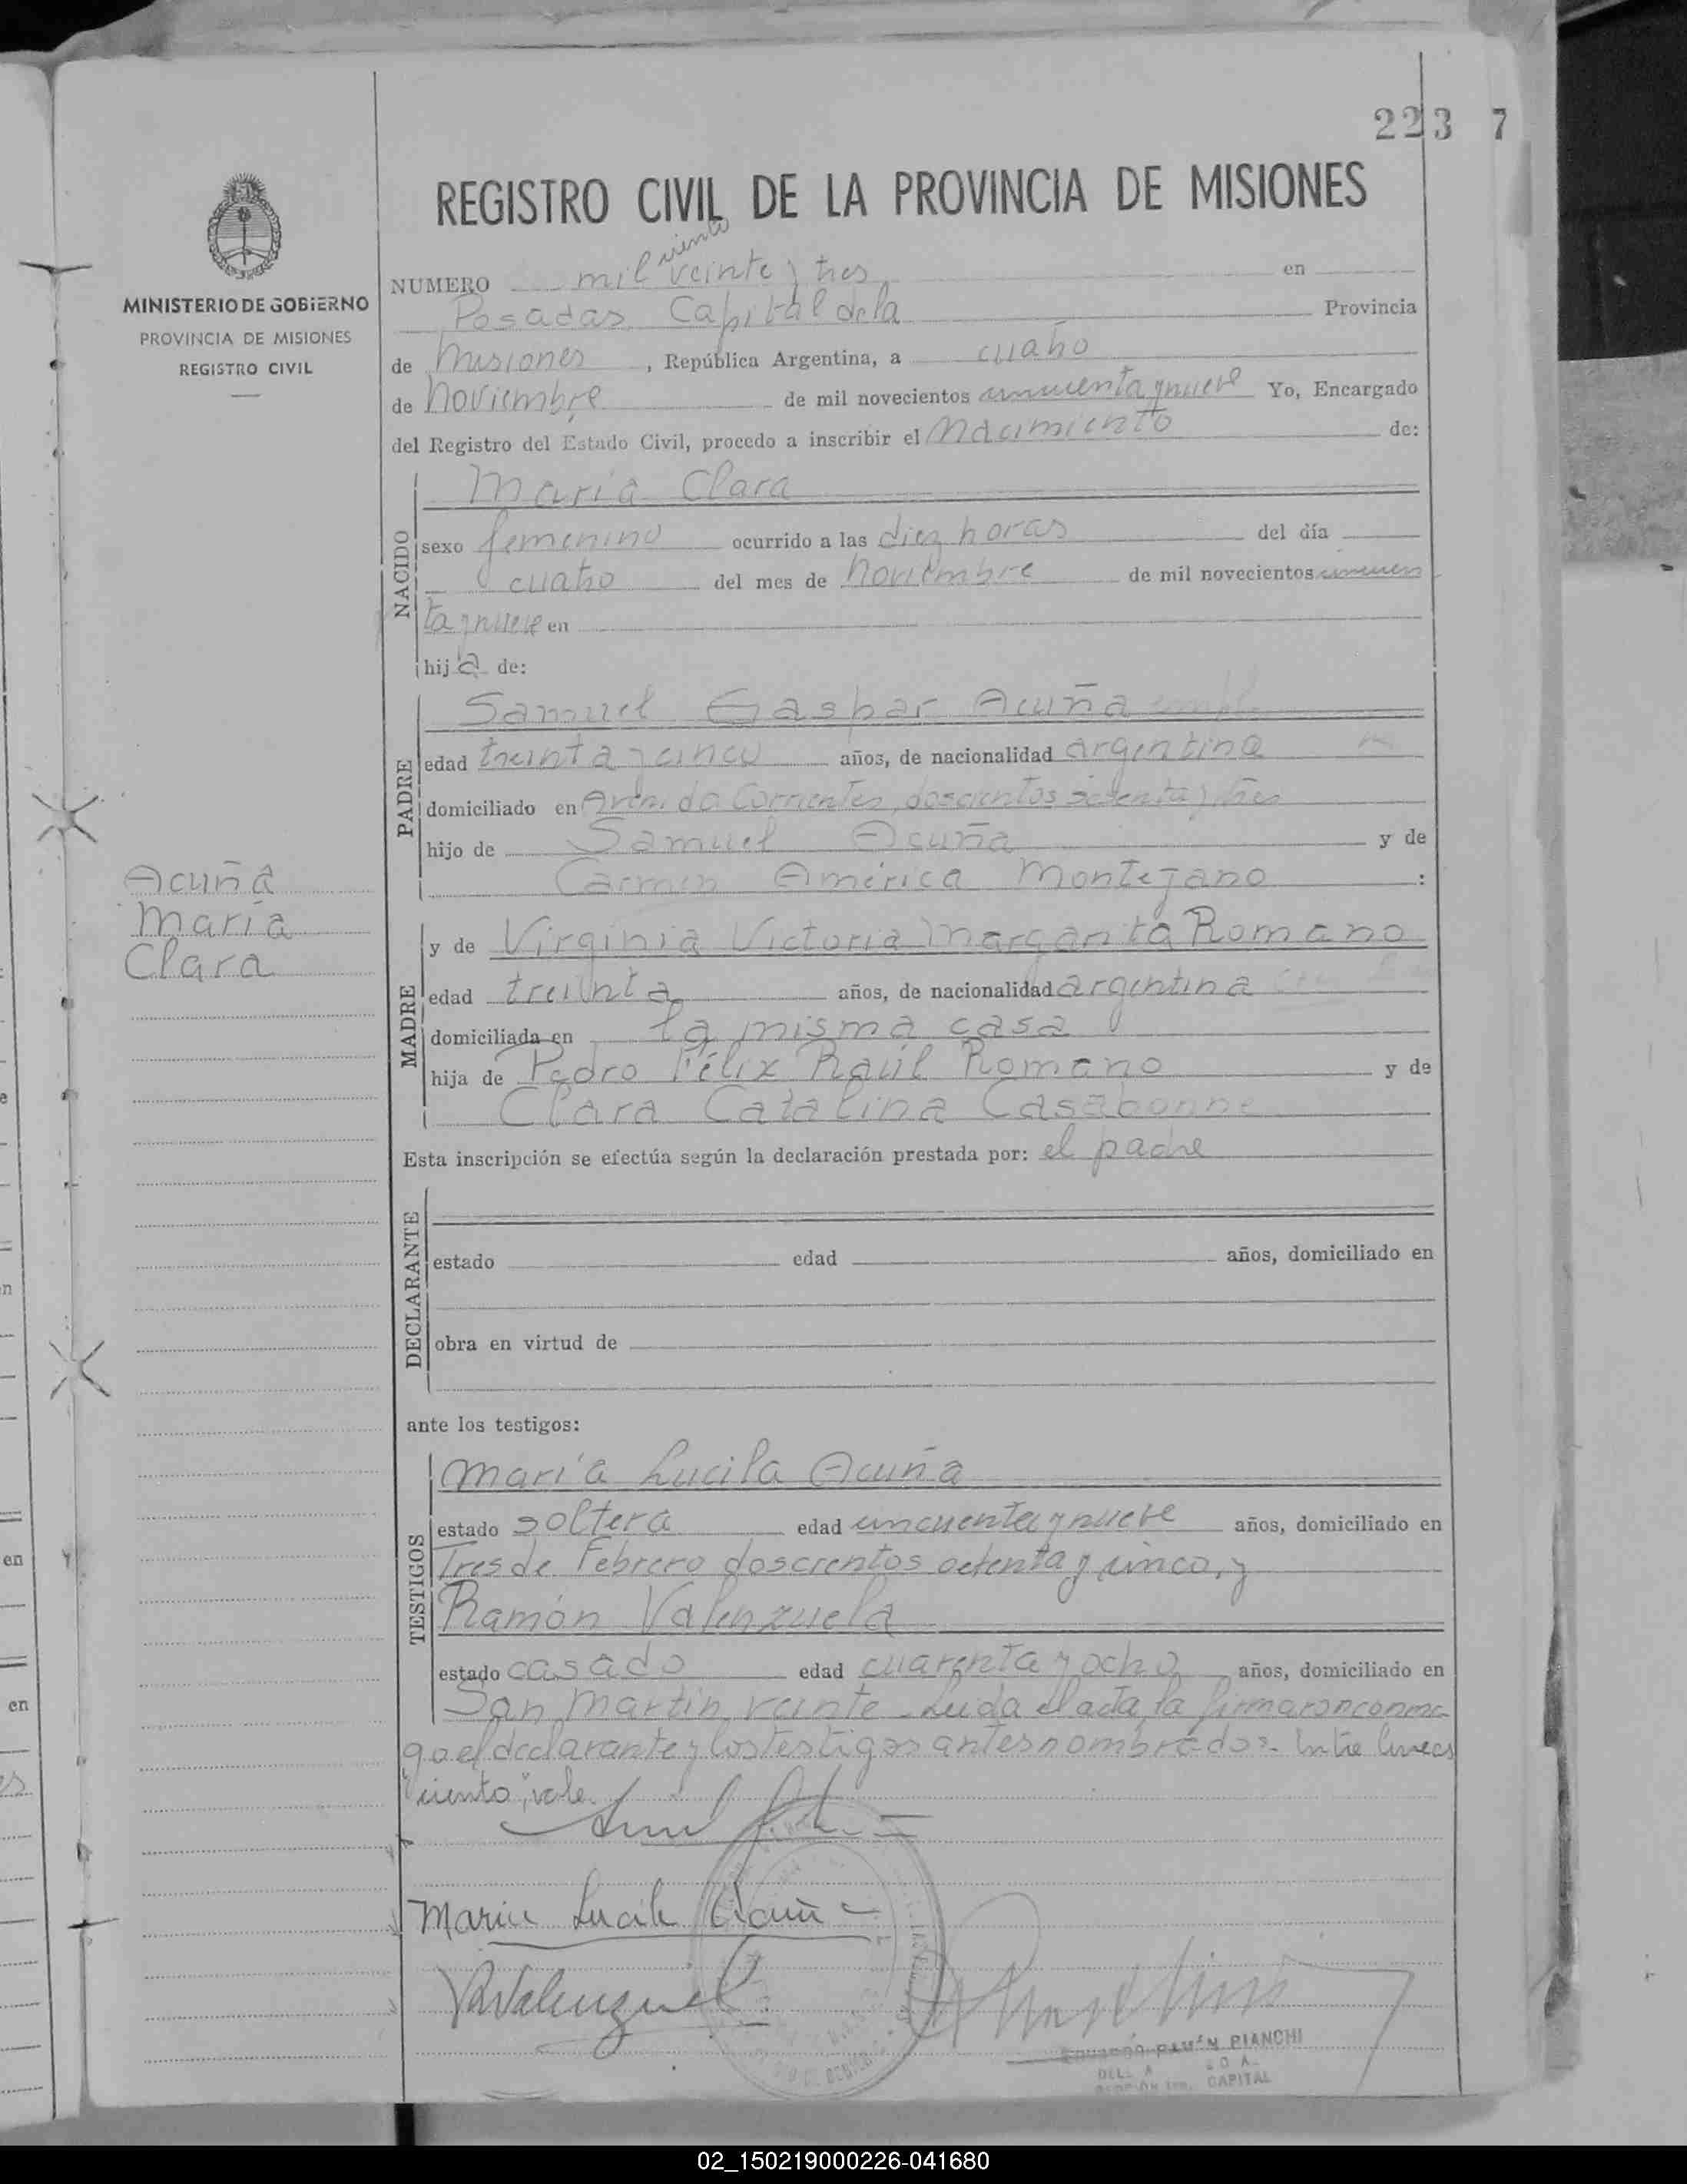 223 7
REGISTRO CIVIL DE LA PROVINCIA DE MISIONES
MINISTERIO DE GOBIERNO
PROVINCIA DE MISIONES
REGISTRO CIVIL
ciento
NUMERO mil veinte y tres en
Posadas Capital de la Provincia
de Misiones, República Argentina, a cuatro
de Noviembre de mil novecientos cincuenta y nueve Yo, Encargado
del Registro del Estado Civil, procedo a inscribir el Nacimiento de:
NACIDO
María Clara
sexo femenino ocurrido a las diez horas del día
cuatro del mes de Noviembre de mil novecientos cincuen
ta y nueve en
hija de:
PADRE
Samuel Gaspar Acuña
edad treinta y cinco años, de nacionalidad argentina
domiciliado en Avenida Corrientes, doscientos setenta y tres
hijo de Samuel Acuña y de
Carmen América Montejano :
Acuña
María
Clara
MADRE
y de Virginia Victoria Margarita Romano
edad treinta años, de nacionalidad argentina
domiciliada en la misma casa
hija de Pedro Félix Raúl Romano y de
Clara Catalina Casabonne
Esta inscripción se efectúa según la declaración prestada por: el padre
DECLARANTE
estado edad años, domiciliado en
obra en virtud de
ante los testigos:
TESTIGOS
María Lucila Acuña
estado soltera edad cincuenta y nueve años, domiciliado en
Tres de Febrero doscientos ochenta y cinco, y
Ramón Valenzuela
estado casado edad cuarenta y ocho años, domiciliado en
San Martín, veinte. Leida el acta, la firmaron conmi
go el declarante y los testigos antes nombrados- Entre lineas
"ciento", vale.
Maria Lucila Acuña
RValenzuela
EDUARDO RAMÓN BIANCHI
CAPITAL
02_150219000226-041680